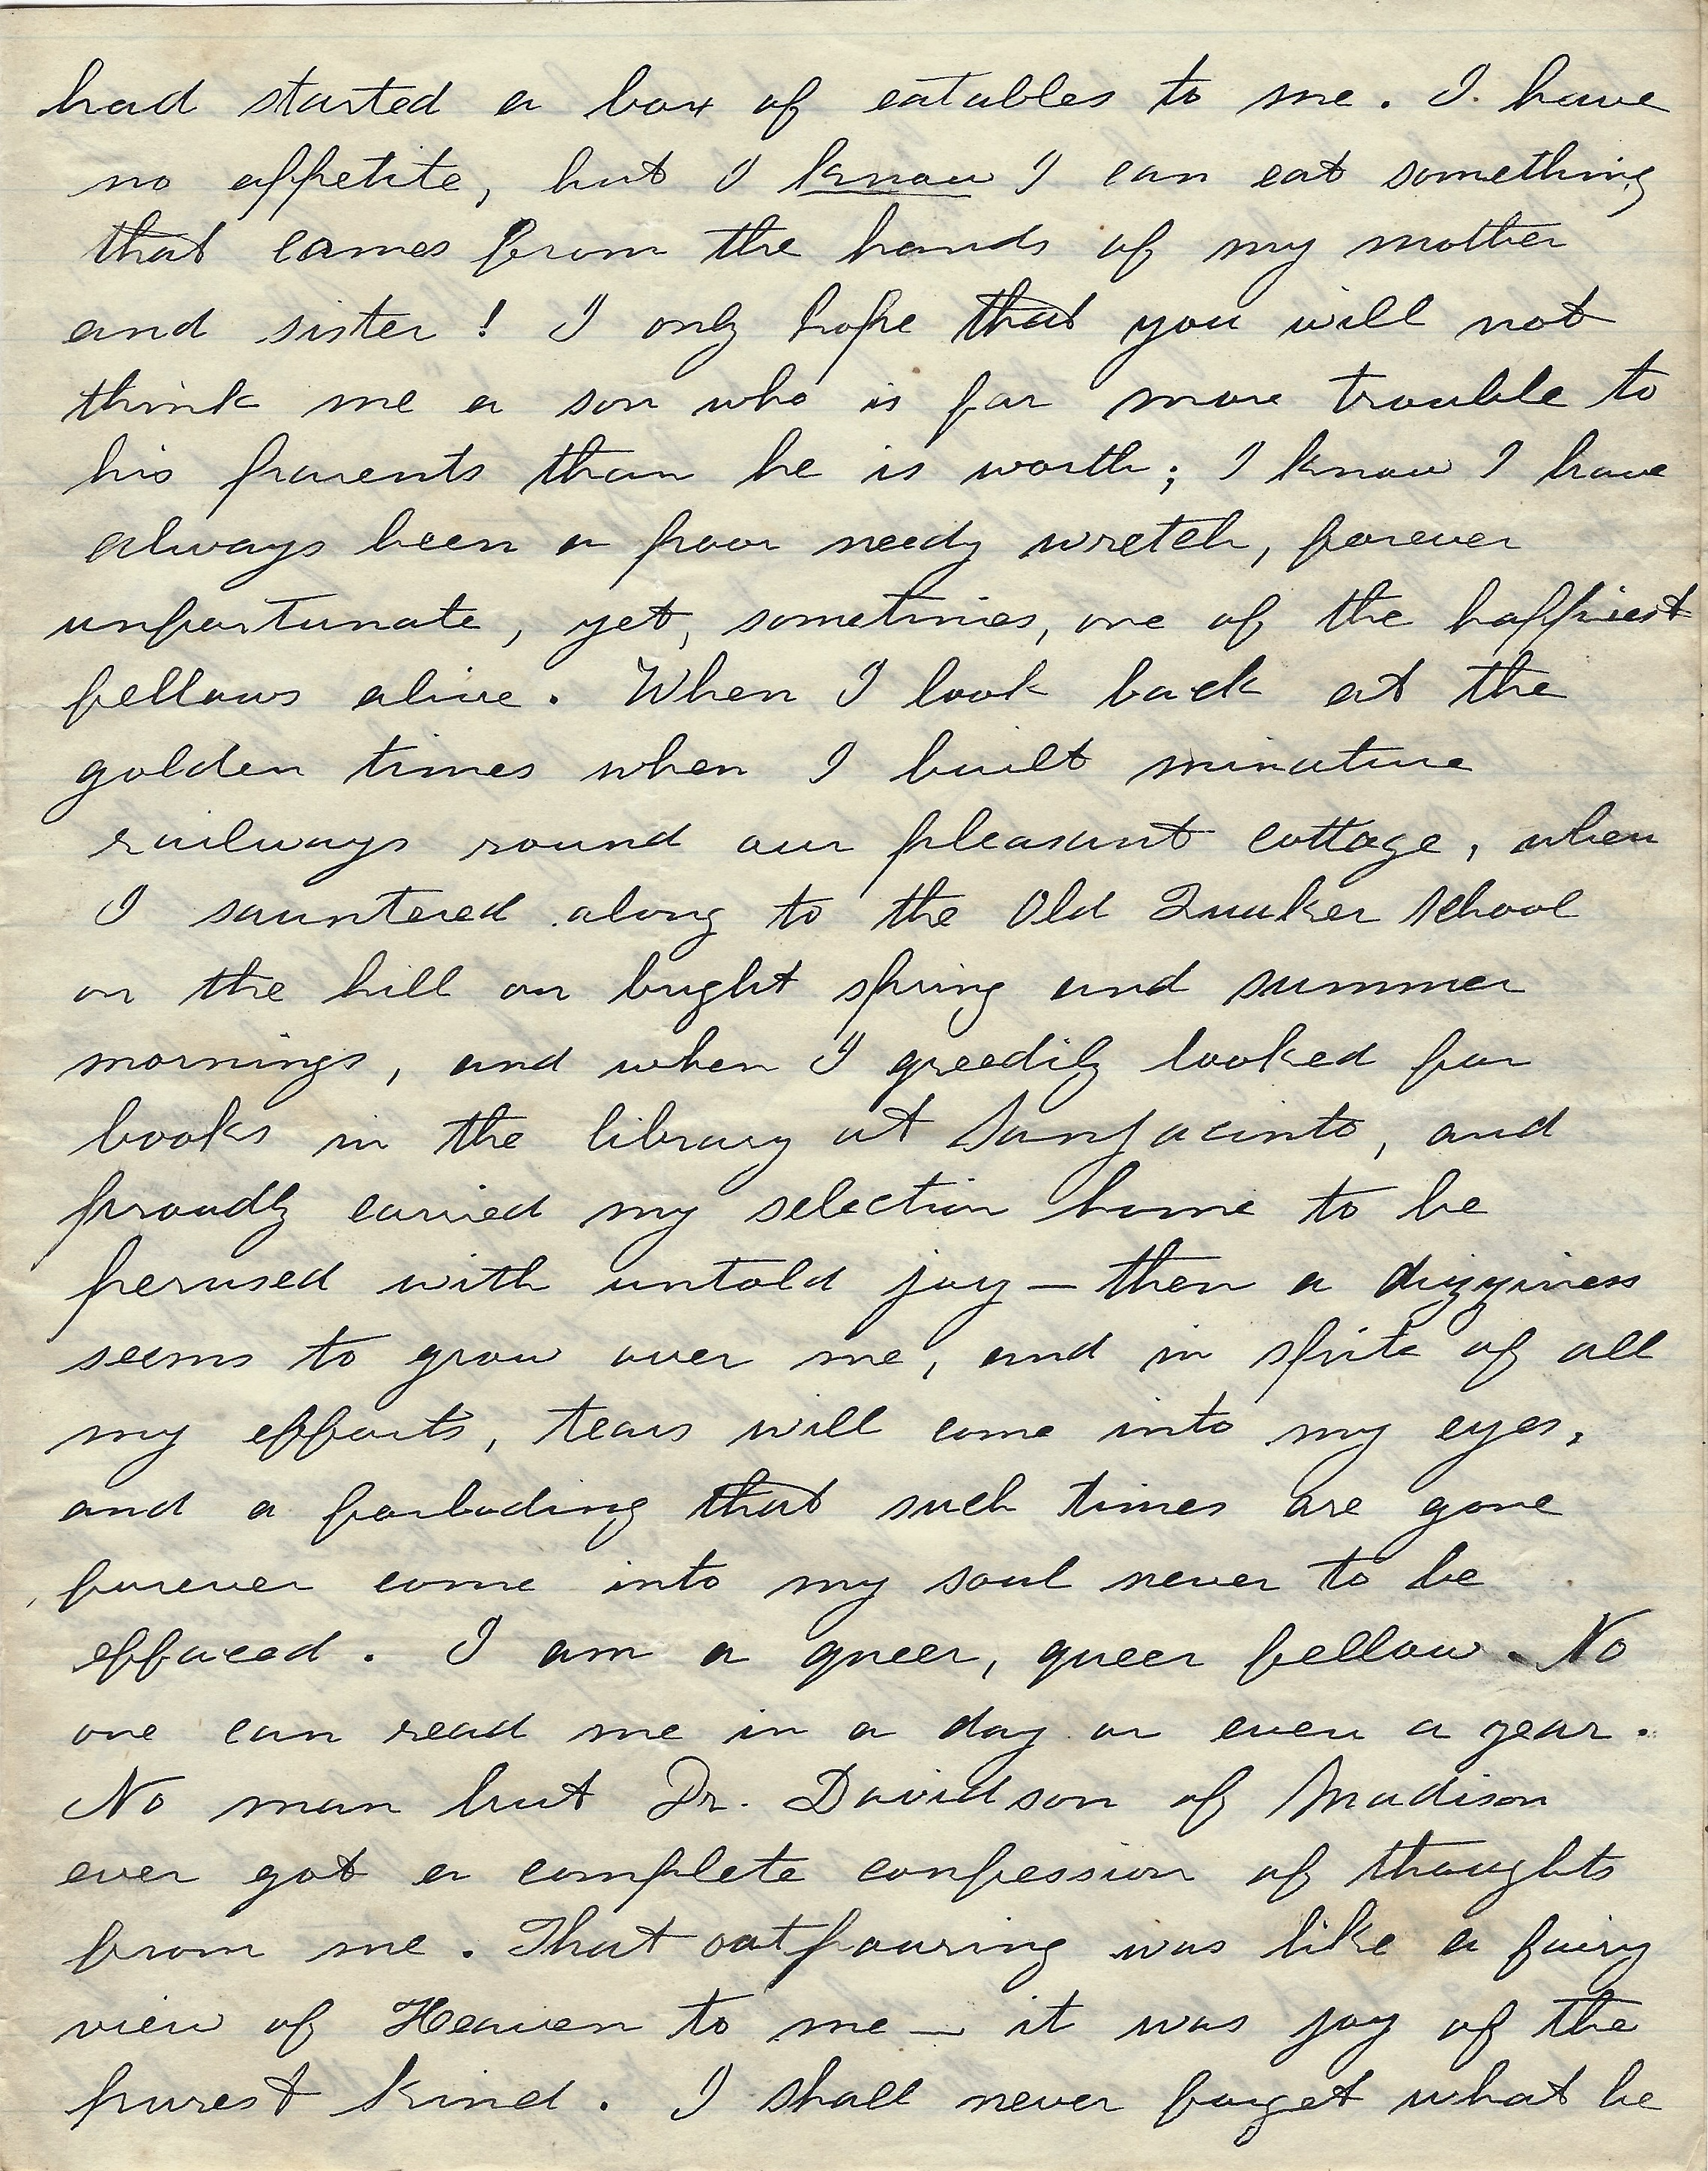 had started a box of eatables to me. I have
no appetite, but I know I can eat something
that comes from the hands of my mother
and sister! I only hope that you will not
think me a son who is far more trouble to
his parents than he is worth; I know I have
always been a poor needy wretch, forever
unfortunate, yet, sometimes, one of the happiest
fellows alive. When I look back at the
golden times when I built minature
railways round our pleasant cottage, when
I sauntered along to the Old Quaker School
on the hill on bright spring and summer
mornings, and when I greedily looked for
books in the library at San Jacinto, and
proudly carried my selection home to be
perused with untold joy — then a dizziness
seems to grow over me, and in spite of all
my efforts, tears will come into my eyes,
and a forboding that such times are gone
forever come into my soul never to be
effaced. I am a queer, queer fellow. No
one can read me in a day or even a year.
No man but Dr. Davidson of Madison
ever got a complete confession of thoughts
from me. That outpouring was like a fairy
view of Heaven to me — it was joy of the
purest kind. I shall never forget what he